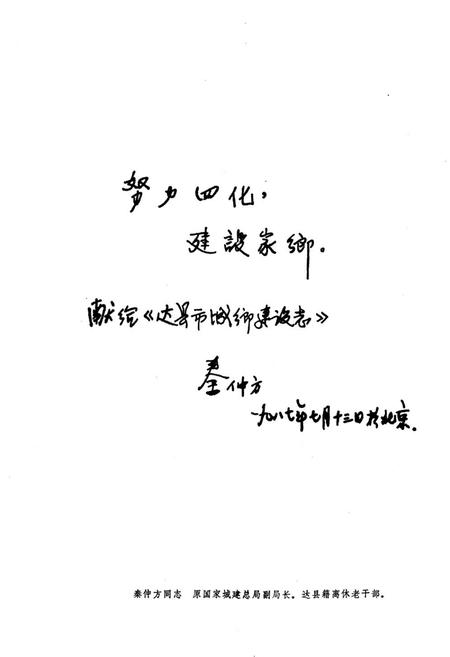 努力四化，
建設家鄉。
献给《达县市城鄉建设志》
秦仲方
一九八七年七月十三日於北京.
秦仲方同志　原国家城建总局副局长。达县籍离休老干部。